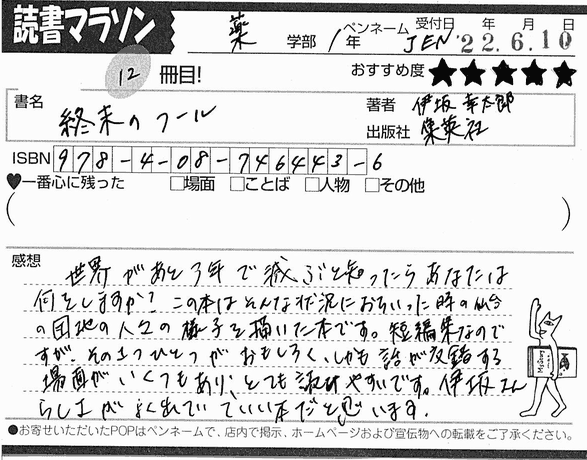 読書マラソン 薬 学部 1年 ペンネーム JEN 受付日 '22年6月10日
12 冊目! おすすめ度 ★★★★★
書名 終末のフール
著者 伊坂幸太郎
出版社 集英社
ISBN 978-4-08-746443-6
♥一番心に残った □場面 □ことば □人物 □その他
( )
感想
世界があと3年で滅ぶと知ったらあなたは
何をしますか? この本はそんな状況におちいった時の仙台
の団地の人々の様子を描いた本です。短編集なので
すが、その1つひとつがおもしろく、しかも話が交錯する
場面がいくつもあり、とても読みやすいです。伊坂さん
らしさがよく出ていていい本だと思います。
Mystery
●お寄せいただいたPOPはペンネームで、店内で掲示、ホームページおよび宣伝物への転載をご了承ください。